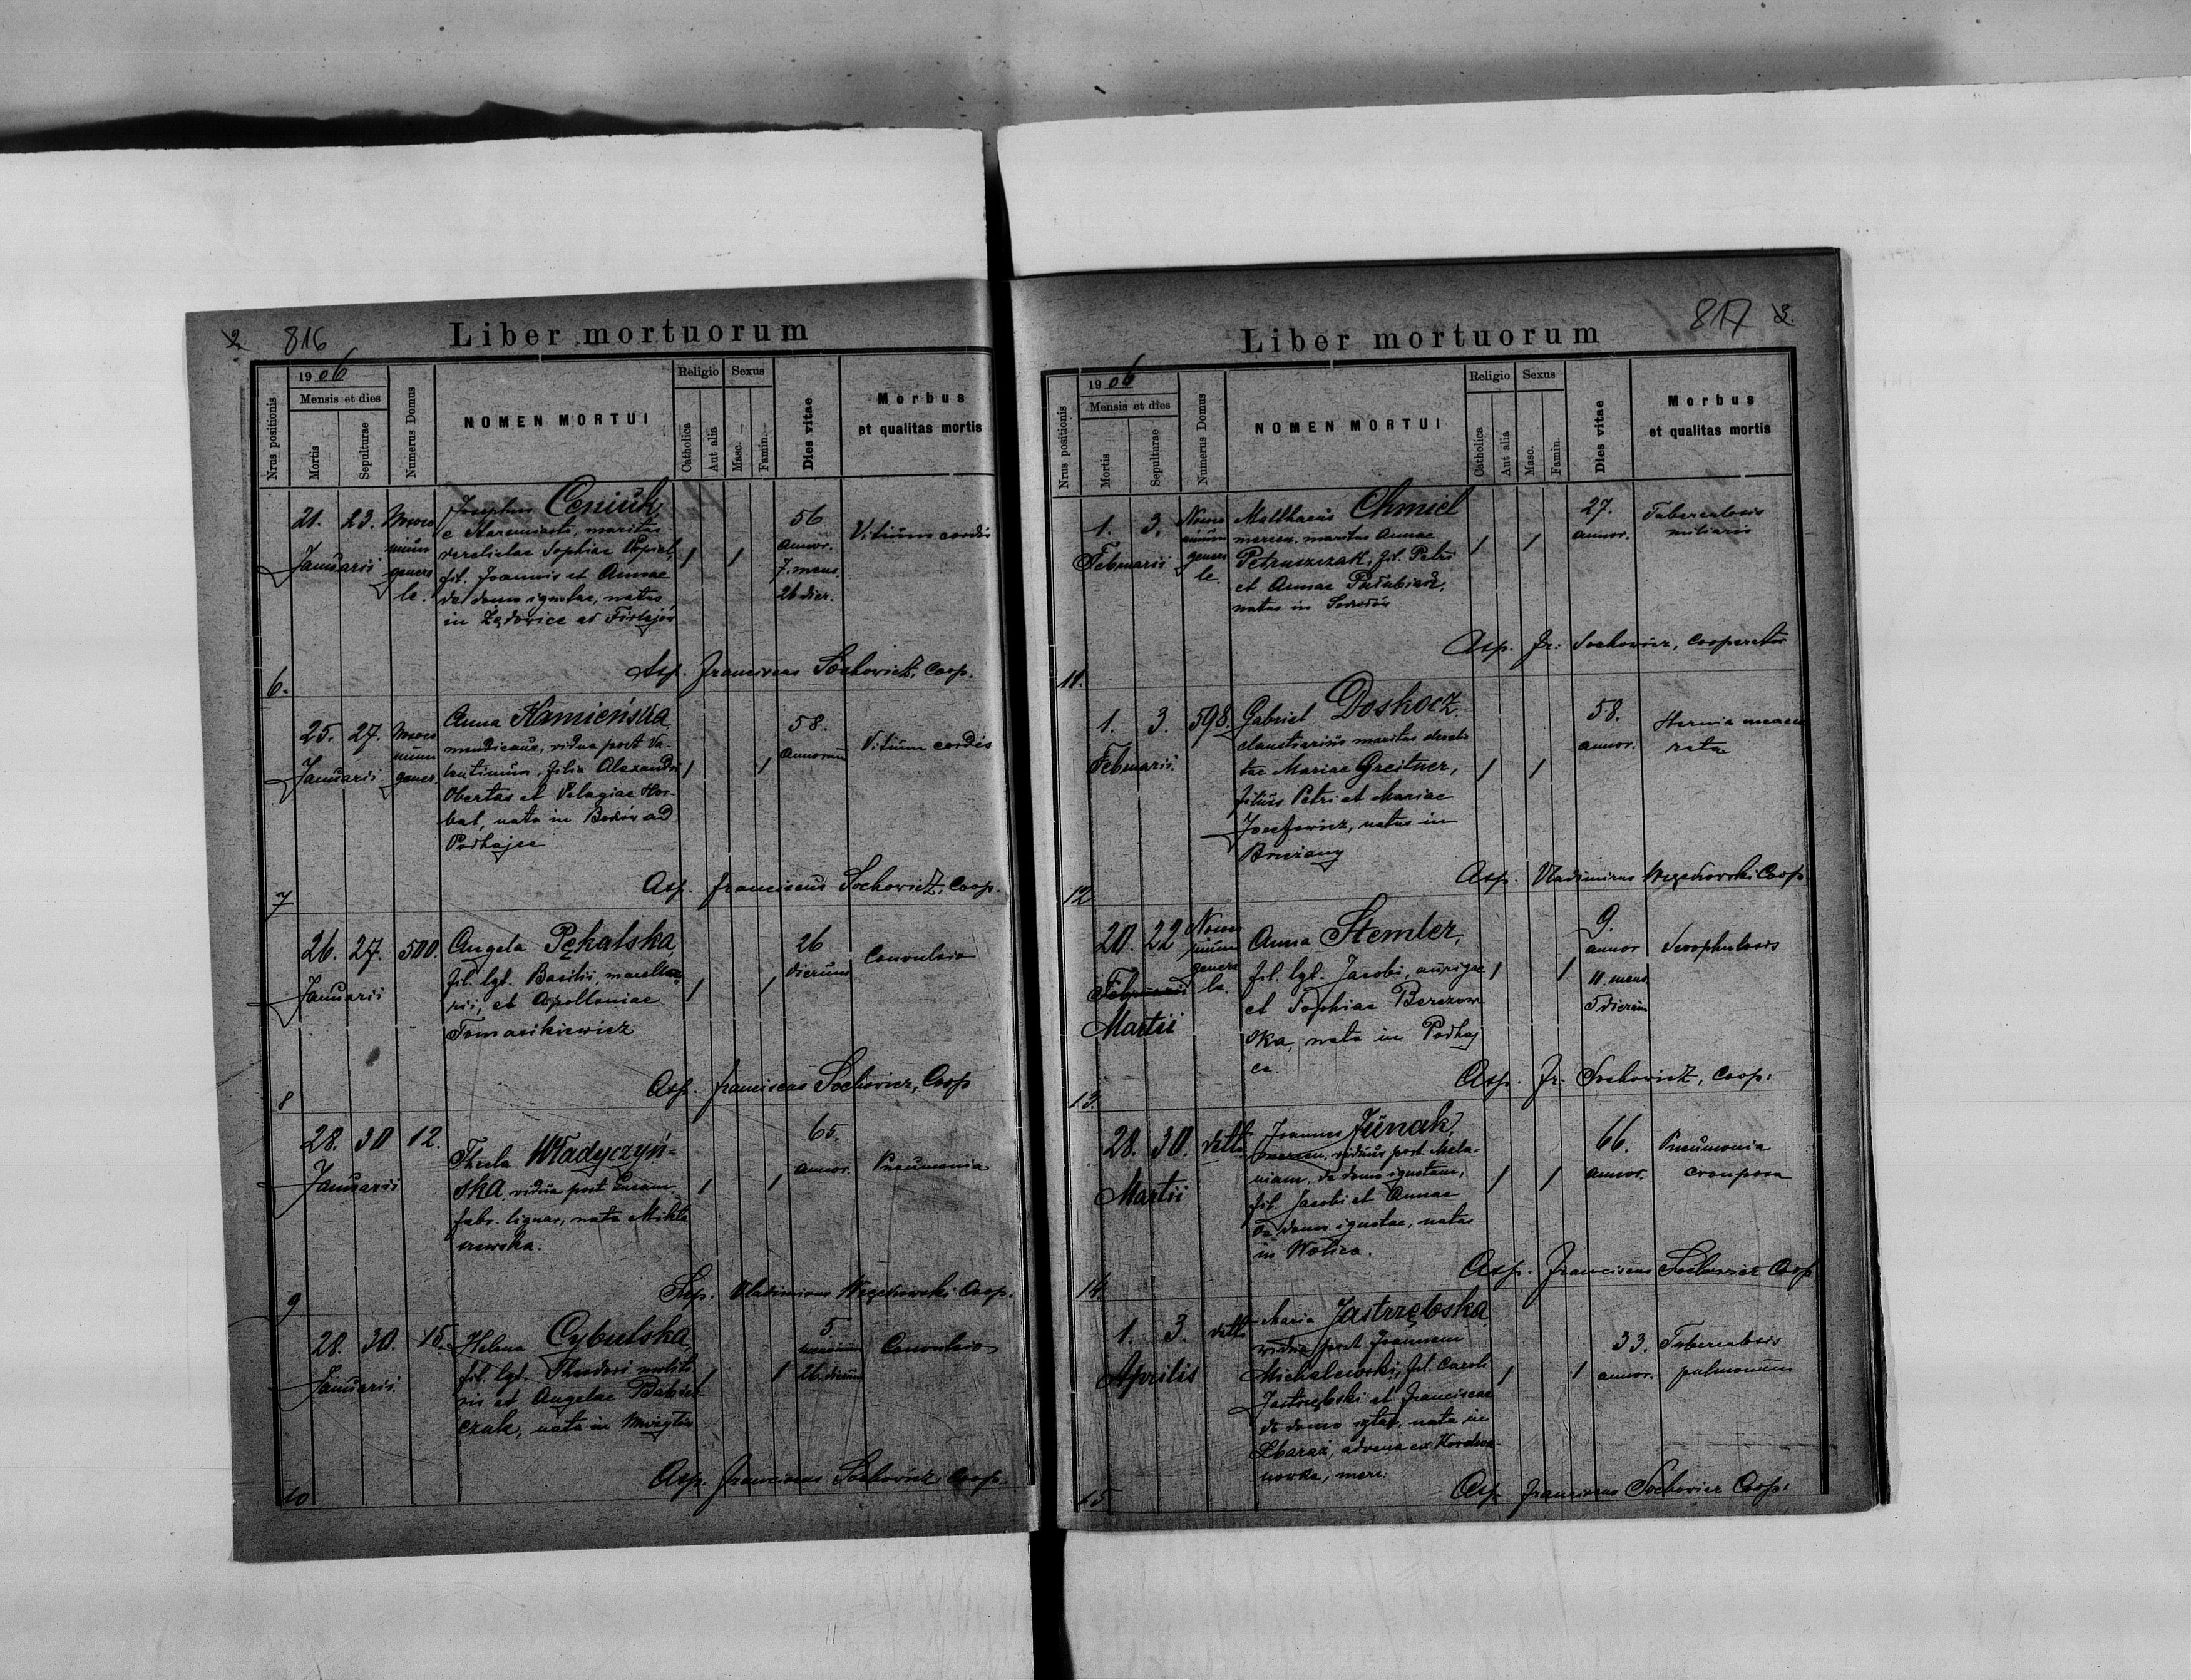 2. 816
Liber mortuorum
Nrus positionis
1906
Mensis et dies
Mortis
Sepulturae
Numerus Domus
NOMEN MORTUI
Religio
Catholica
Aut alia
Sexus
Masc.
Famin.
Dies vitae
Morbus
et qualitas mortis
6.
21. 23.
Januarii
genera
le.
Josephus Ceniuk
maritus
derelictae Sophiae
fil. Joannis et Annae
de domo ignotae, natus
in Żędowice ad Firlejów
1 1
56
annor.
7. mens.
26 dier.
Vitium cordis
Asp. Franciscus Sochowicz, Coop.
7
25. 27.
Januarii
gener.
Anna Kamieńska
mendicans, vidua post Va-
lentinum, filia Alexandri
Obertas et Pelagiae Hor-
bal, nata in
Podhajce
1 1
58.
annorum
Vitium cordis
Asp. Franciscus Sochowicz, Coop.
8
26. 27. 500.
Januarii
Angela Pękalska,
fil. lgt. Basilii, macella-
rii, et Apolloniae
Tomasikiewicz
1 1
26
dierum
Convulsio
Asp. Franciscus Sochowicz, Coop
9
28. 30 12.
Januarii
Thecla Władyczyń=
ska, vidua post Lucam
fabr. lignar, nata Mikla
szewska.
1 1
65.
annor.
Pneumonia
Sep. Vladimirus Węgrzowski Coop.
10
28. 30. 15.
Januarii
Helena Cybulska,
fil. lgt. Theodori molito
ris et Angelae Babiat
czuk, nata in
1 1
5.
mensium
26 dierum
Convulsio
Asp. Franciscus Sochowicz, Coop.
817 3.
Liber mortuorum
Nrus positionis
1906
Mensis et dies
Mortis
Sepulturae
Numerus Domus
NOMEN MORTUI
Religio
Catholica
Aut alia
Sexus
Masc.
Famin.
Dies vitae
Morbus
et qualitas mortis
11.
1. 3.
Februarii
genera
le.
Matthaeus Chmiel
mercen. maritus Annae
Petruszczak, fil. Petri
et Annae
natus in
1 1
27.
annor.
Tuberculosis
miliaris
Asp. Fr: Sochowicz, Cooperator
12
1. 3. 598.
Februarii.
Gabriel Doskocz,
claustrarius maritus dereli
tae Mariae Greitner,
filius Petri et Mariae
Josefowicz, natus in
Brzeżany
1 1
58.
annor.
Hernia incarce
rata
Asp. Vladimirus Węgrzowski Coop.
13.
20. 22
Februarii
Martii
genera
le.
Anna Stemler,
fil. lgt. Jacobi, aurigae
et Sophiae Berezow
ska, nata in Podhaj
ce.
1 1
9.
annor
11. mens
5 dierum
Scrophulosis
Asp. Fr. Sochowicz, Coop:
14
28. 30. detto
Martii
Joannes Junak,
viduus post Mela-
niam, de domo ignotam,
fil. Jacobi et Annae
de domo ignotae, natus
in Wolica.
1 1
66.
annor.
Pneumonia
crouposa
Asp. Franciscus Sochowicz Coop
15
1. 3. detto
Aprilis
Maria Jastrzębska
vidua post Joannem
Michalewski, fil. Caroli
Jastrzębski et Franciscae
de domo igtae, nata in
Zbaraż, advena ex
nowka, merc.
1 1
33.
annor.
Tuberculosis
pulmonum
Asp. Franciscus Sochowicz Coop: